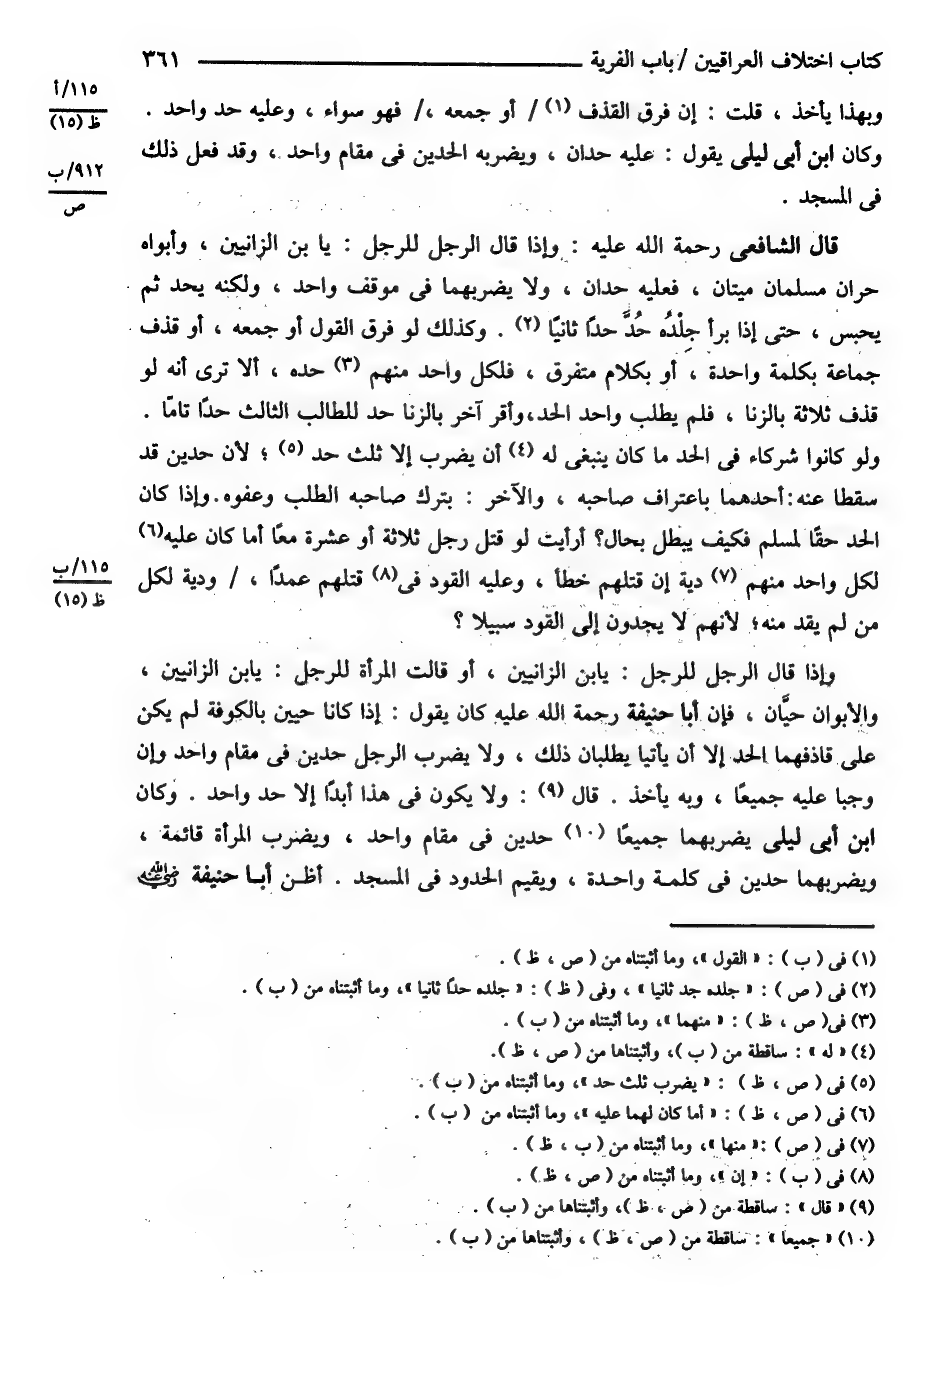 كتاب اختلاف العراقيين / باب الفرية ــــــــــــ ٣٦١
وبهذا يأخذ ، قلت : إن فرق القذف (١) / أو جمعه ،/ فهو سواء ، وعليه حد واحد .
١١٥/أ
ظ (١٥)
وكان ابن أبى ليلى يقول : عليه حدان ، ويضربه الحدين فى مقام واحد ، وقد فعل ذلك
٩١٢/ب
ص
فى المسجد .
قال الشافعى رحمة الله عليه : وإذا قال الرجل للرجل : يا بن الزانيين ، وأبواه
حران مسلمان ميتان ، فعليه حدان ، ولا يضربهما فى موقف واحد ، ولكنه يحد ثم
يحبس ، حتى إذا برأ جِلْدُه حُدَّ حدًا ثانيًا (٢) . وكذلك لو فرق القول أو جمعه ، أو قذف
جماعة بكلمة واحدة ، أو بكلام متفرق ، فلكل واحد منهم (٣) حده ، ألا ترى أنه لو
قذف ثلاثة بالزنا ، فلم يطلب واحد الحد،وأقر آخر بالزنا حد للطالب الثالث حدًا تامًا .
ولو كانوا شركاء فى الحد ما كان ينبغى له (٤) أن يضرب إلا ثلث حد (٥) ؛ لأن حدين قد
سقطا عنه:أحدهما باعتراف صاحبه ، والآخر : بترك صاحبه الطلب وعفوه.وإذا كان
الحد حقًا لمسلم فكيف يبطل بحال؟ أرأيت لو قتل رجل ثلاثة أو عشرة معًا أما كان عليه(٦)
لكل واحد منهم (٧) دية إن قتلهم خطأ ، وعليه القود فى(٨) قتلهم عمدًا ، / ودية لكل
١١٥/ب
ظ (١٥)
من لم يقد منه؛ لأنهم لا يجدون إلى القود سبيلا ؟
وإذا قال الرجل للرجل : يابن الزانيين ، أو قالت المرأة للرجل : يابن الزانيين ،
والأبوان حيَّان ، فإن أبا حنيفة رحمة الله عليه كان يقول : إذا كانا حيين بالكوفة لم يكن
على قاذفهما الحد إلا أن يأتيا يطلبان ذلك ، ولا يضرب الرجل حدين فى مقام واحد وإن
وجبا عليه جميعًا ، وبه يأخذ . قال (٩) : ولا يكون فى هذا أبدًا إلا حد واحد . وكان
ابن أبى ليلى يضربهما جميعًا (١٠) حدين فى مقام واحد ، ويضرب المرأة قائمة ،
ويضربهما حدين فى كلمة واحدة ، ويقيم الحدود فى المسجد . أظن أبا حنيفة رضي الله عنه
(١) فى ( ب ) : « القول »، وما أثبتناه من ( ص ، ظ ) .
(٢) فى ( ص ) : « جلده جد ثانيا » ، وفى ( ظ ) : « جلده حدًا ثانيا »، وما أثبتناه من ( ب ) .
(٣) فى( ص ، ظ ) : « منهما »، وما أثبتناه من ( ب ) .
(٤) « له » : ساقطة من ( ب )، وأثبتناها من ( ص ، ظ ).
(٥) فى ( ص ، ظ ) : « يضرب ثلث حد »، وما أثبتناه من ( ب ) .
(٦) فى ( ص ، ظ ) : « أما كان لهما عليه »، وما أثبتناه من ( ب ) .
(٧) فى ( ص ) :« منها »، وما أثبتناه من ( ب ، ظ ) .
(٨) فى ( ب ) : « إن »، وما أثبتناه من ( ص ، ظ ) .
(٩) « قال » : ساقطة من ( ص ، ظ )، وأثبتناها من ( ب ) .
(١٠) « جميعا » : ساقطة من ( ص ، ظ ) ، وأثبتناها من ( ب ) .